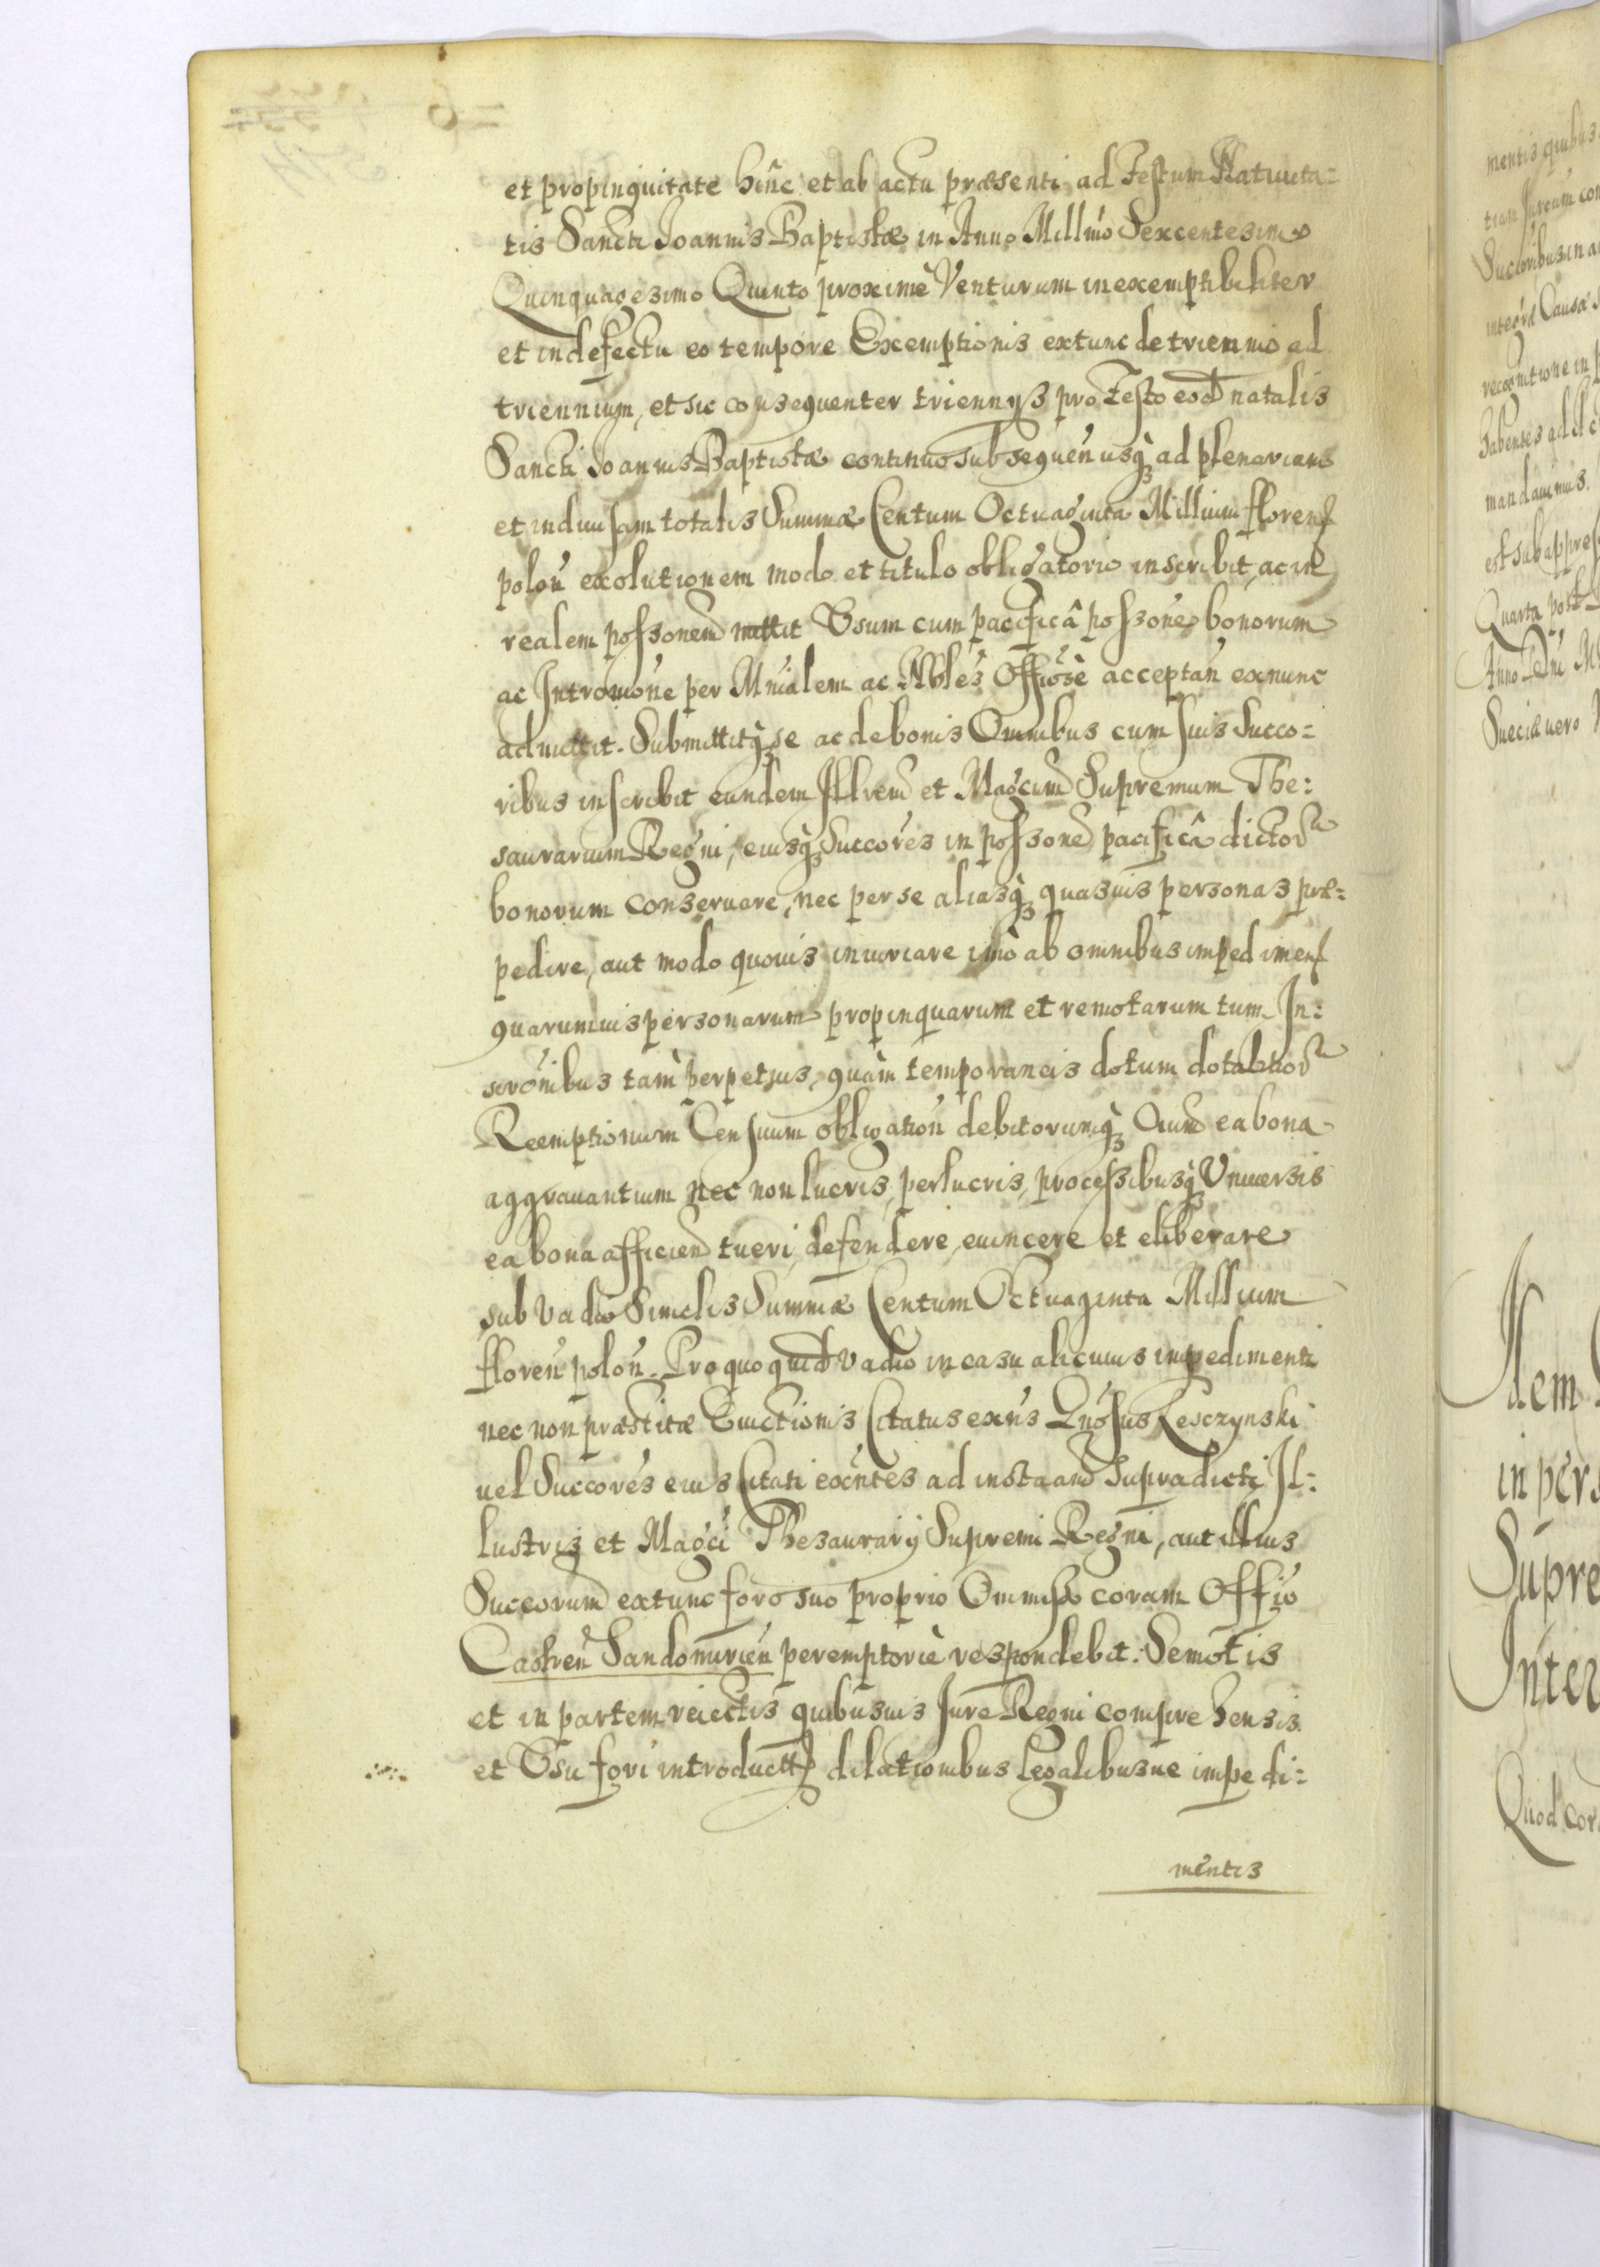 et propinquitate hinc et ab actu præsenti ad Festum Natiuita=
tis Sancti Joannis Baptistæ in Anno Millmo Sexcentesimo
Quinquagesimo Quinto proximè Venturum inexemptibiliter
et in defectu eo tempore Exemptionis extunc de triennio ad
triennium, et sic consequenter triennys pro Festo eod natalis
Sancti Joannis Baptistæ continuo subsequen usq; ad plenariam
et indiuisam totalis Summæ Centum Octuaginta Millium floren
polon exolutionem modo et titulo obligatorio inscribit, ac in
realem possonem mittit Usum cum pacificâ possone bonorum
ac Intromone per Mnialem ac Nbles Offiosè acceptan exnunc
admittit. Submittitq; se ac de bonis Omnibus cum suis Succo=
ribus inscribit eundem Illrem et Magcum Supremum The:
saurarium Regni, eiusq; Succores in possone pacificâ dictor
bonorum conseruare, nec per se aliasq; quasuis personas præ=
pedire, aut modo quouis iniuriare imò ab omnibus impedimen
quarumuis personarum propinquarum et remotarum tum In:
scronibus tàm perpetuis, quàm temporaneis dotum dotalitior
Reemptionum Censuum obligation debitorumq; Oium ea bona
aggrauantium nec non lucris, perlucris, processibusq; Vniuersis
ea bona afficien tueri, defendere, euincere et eliberare
sub vadio Similis Summæ Centum Octuaginta Millium
floren polon. Pro quo quid vadio in casu alicuius impedimenti
nec non præstitæ Euictionis Citatus exns Gnosus Lesczynski
uel Succores eius Citati exntes ad instaam supradicti Il=
lustris et Magci Thesaurarij Supremi Regni, aut illius
Succorum extunc foro suo proprio Omisso coram Offio
Castren Sandomirien peremptoriè respondebit. Semotis
et in partem reiectis quibusuis Jure Regni comprehensis
et Usu fori introductis dilationibus Legalibusue impedi=
mentis
mentis quibus
Succoribus in
integra Causa
recognitione in
habentes ad
mandauimus.
est sub appres
Quarta post
Anno Dni
Sueciæ uero
Idem
in pers
Supre
Inter
Quod cor